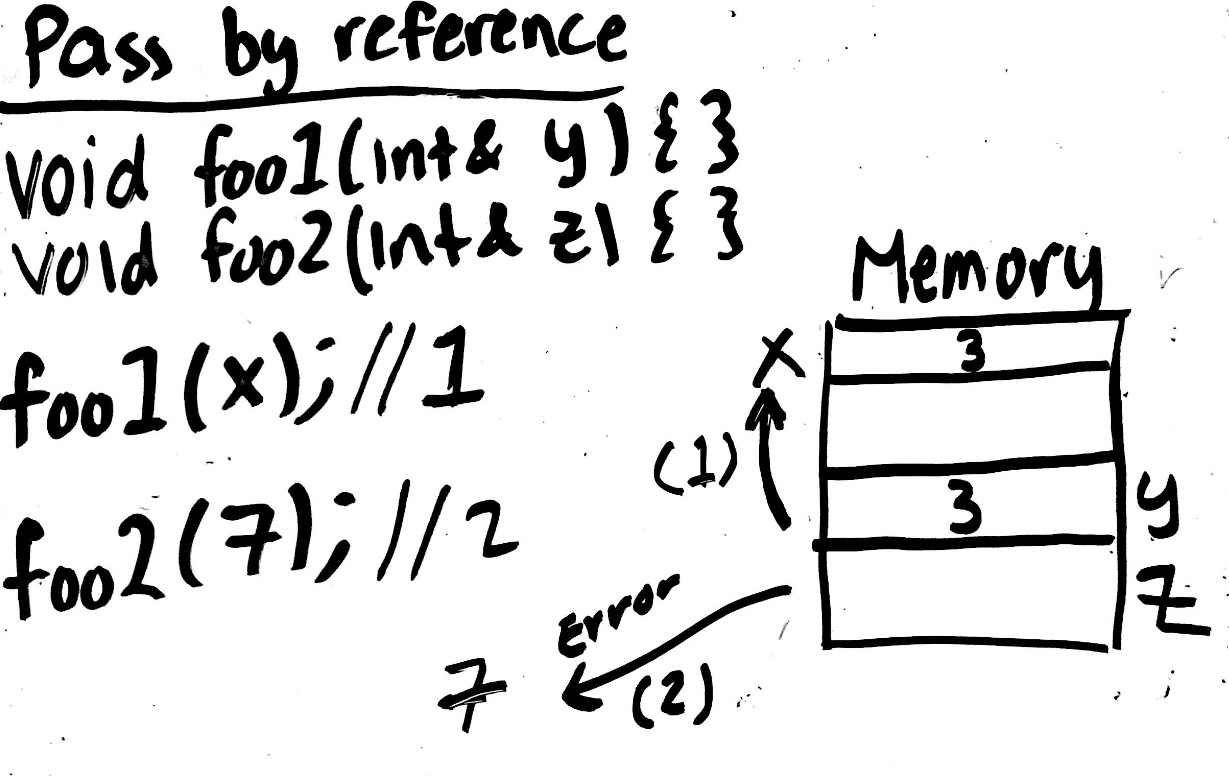 Pass by reference
void foo1(int& y) { }
void foo2(int& z) { }
foo1(x); //1
foo2(7); //2
Memory
x
3
(1)
3
y
z
Error
(2)
7